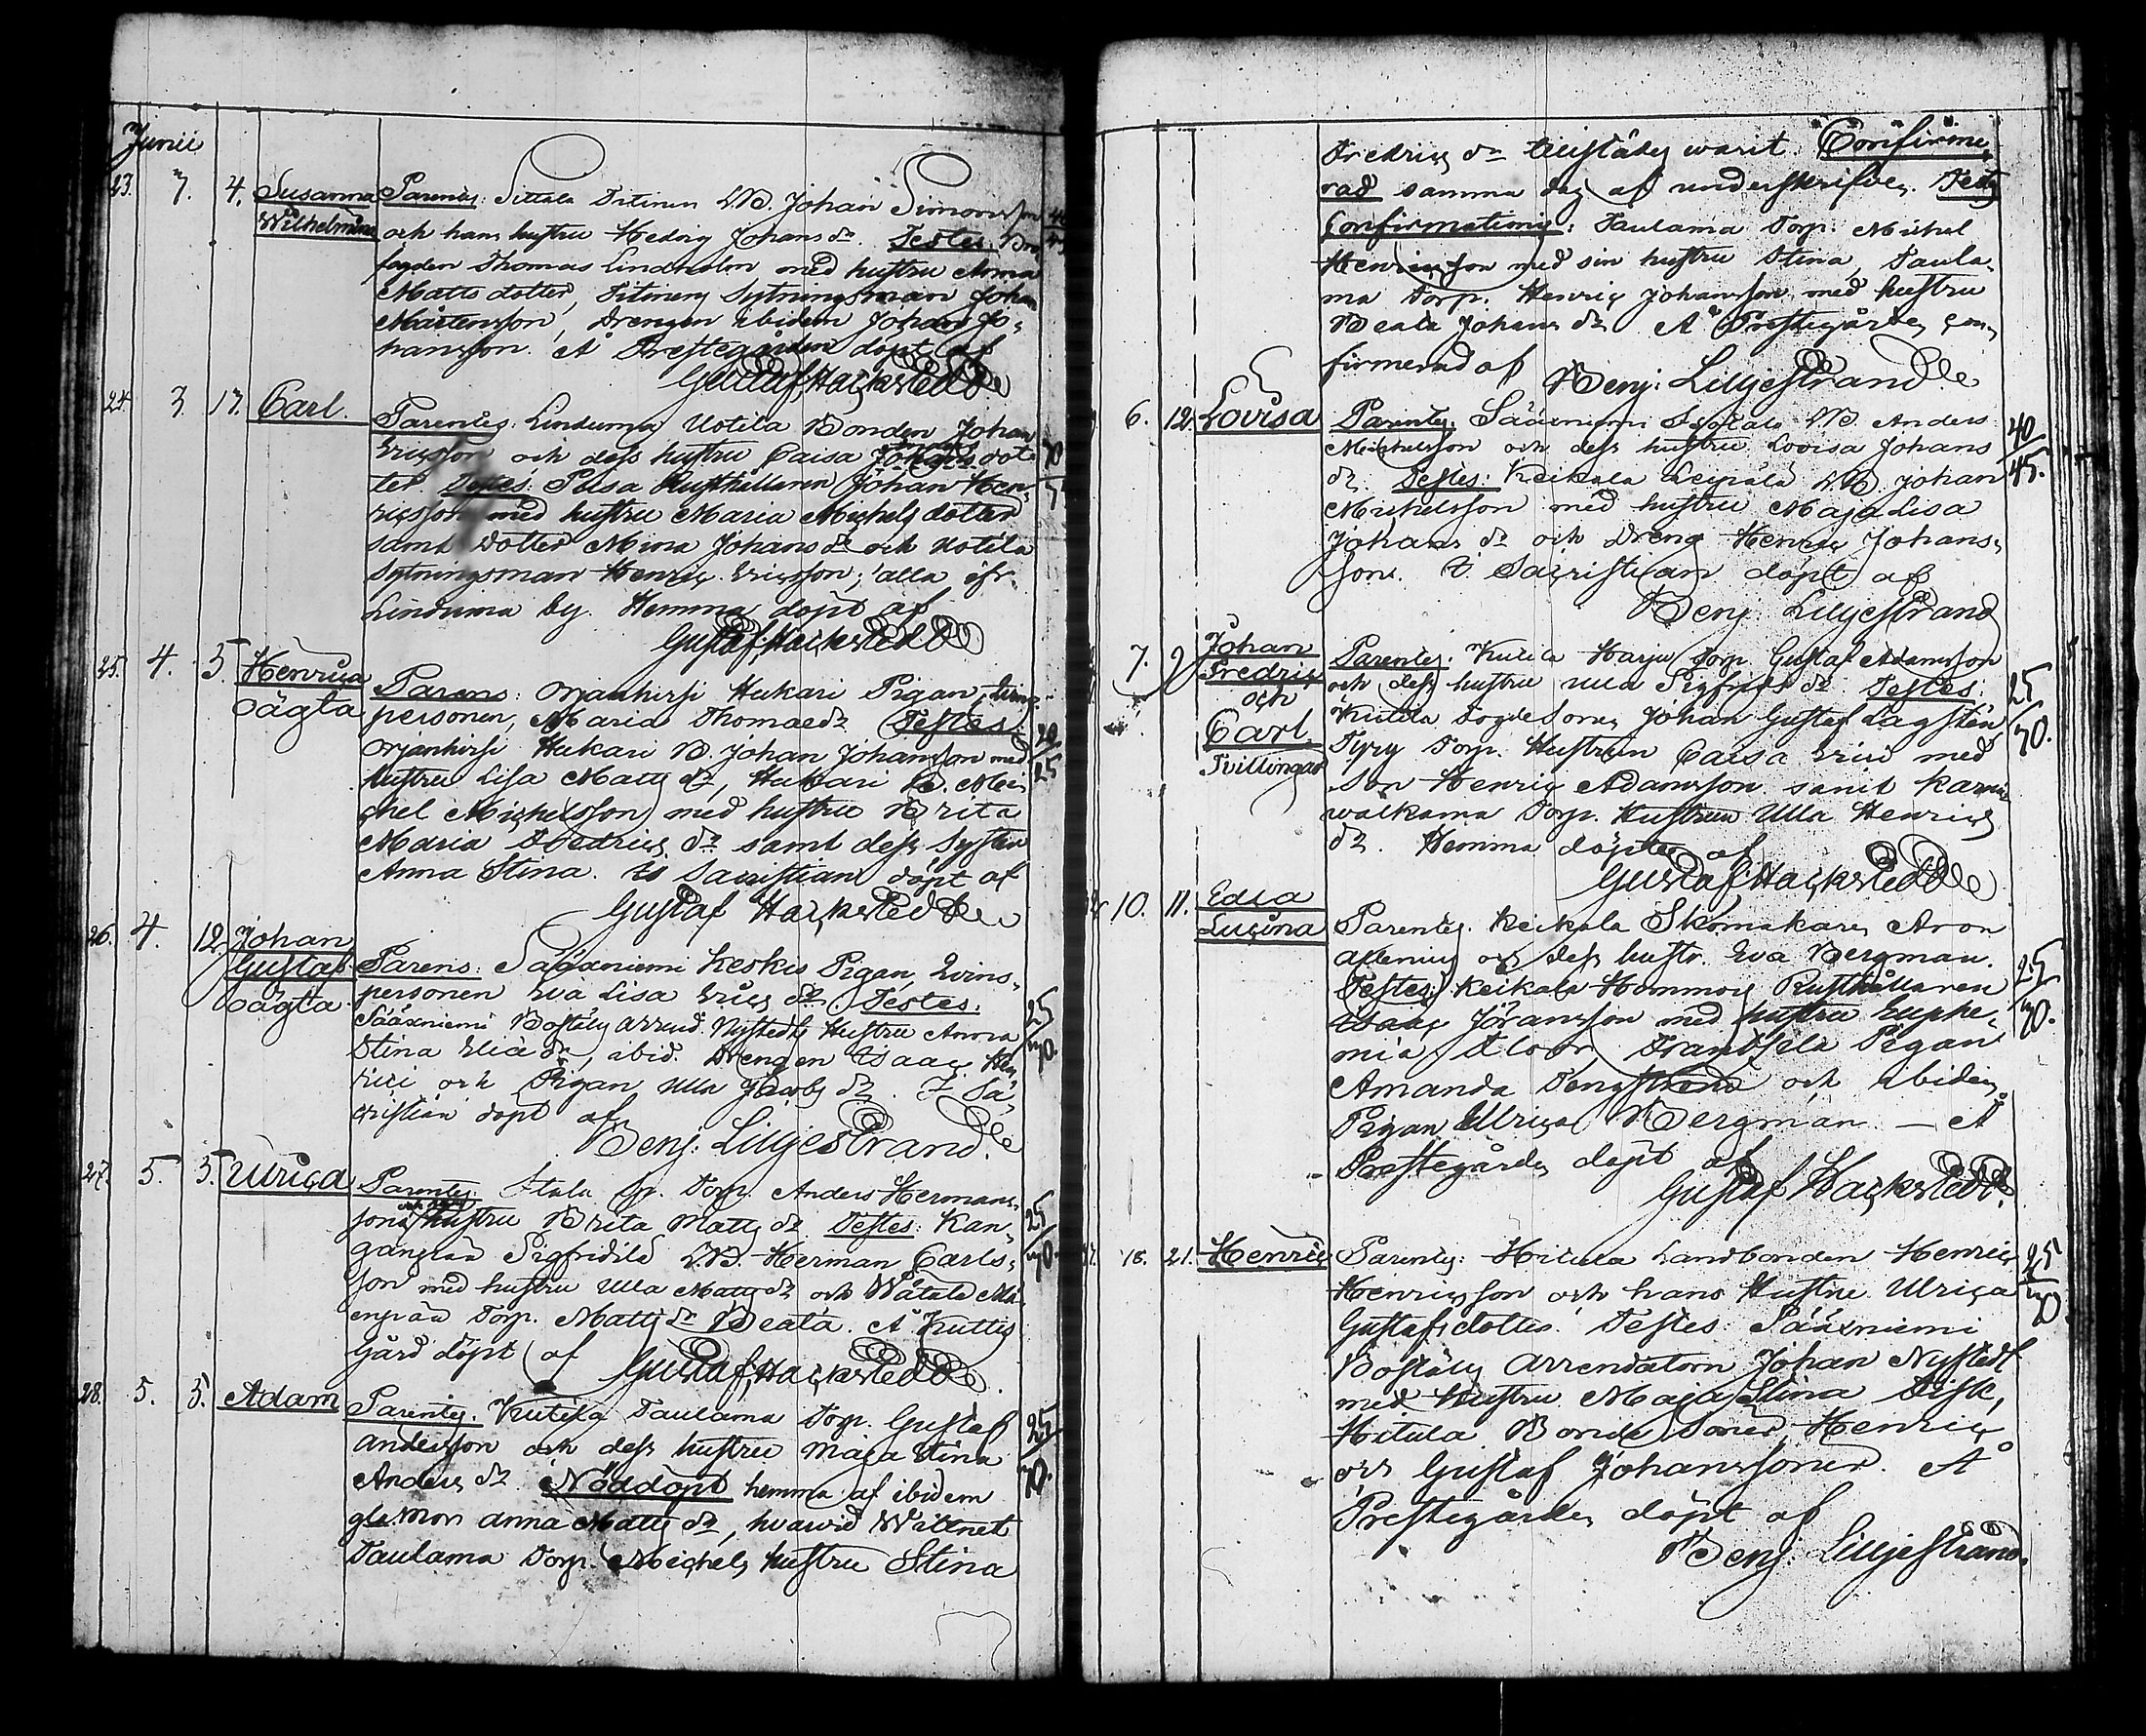 Junii
23. 7. 4. Susanna Parentes: Sittala Ditinen LB. Johan Simonsson 40
Wilhelmina och hans hustru Hedvig Johans dr. Testes:
fogden Thomas Lindholm med hustru Anna
Matts dotter, Ditinens Sytningsman Johan
Mårtensson, Drengen ibidem Johan Jo-
hansson. Å Prestegården döpt af
Gustaf Hacksted
24. 3. 17. Carl. Parentes: Lintuma Uotila Bonden Johan
Ericsson och dess hustru Caisa dot- 70
ter. Testes: Pusa Rusthållaren Johan Hen-
ricsson med hustru Maria Michels dotter
samt Dotter Mina Johans dr och Uotila
Sytningsman Henric Ericsson; alla ifr.
Lintuma by. Hemma döpt af
Gustaf Hacksted
25. 4. 5. Henrica Parens: Orjanhirsi Hukari Pigan, Qvins-
oägta personen, Maria Thomae dr Testes:
Orjanhirsi Hukari B. Johan Johansson med 20
hustru Lisa Matts dr, Hukari B. Mi- 25
chel Michelsson med hustru Brita
Maria Fredrics dr samt dess Syster
Anna Stina. Uti Sacristian döpt af
Gustaf Hacksted
26. 4. 12. Johan
Gustaf Parens: Sääxniemi Keskis Pigan, Qvins-
oägta. personen Eva Lisa Erics dr. Testes: 25
Sääxniemi Boställs Arrend. Nystedts Hustru Anna 30.
Stina Elia dr, ibid. Drengen Isaac Hen-
rici och Pigan Ulla Jacobs dr. I Sa-
cristian döpt af
Benj: Liljestrand.
27. 5. 5. Ulrica Parentes: Stala Torp. Anders Hermans-
sons hustru Brita Matts dr Testes: Kan- 25
ganpää Sigfridila LB. Herman Carls- 30.
son med hustru Ulla Matts dr och Wätälä
enpää Torp. Matts dr Beata. Å Kuttis
Gård döpt af Gustaf Hacksted
28. 5. 5. Adam Parentes: Kutila Taulama Torp. Gustaf 25
Andersson och dess hustru Maja Stina 30.
Anders dr. Nöddöpt hemma af ibidem
gla Mor Anna Matts dr, hvarvid Wittnet
Taulama Torp. Michels hustru Stina
Fredrics dr tillstädes warit. Confirme-
rad samma dag af underskrifven. Testes
Confirmationis: Taulama Torp. Michel
Henricsson med sin hustru Stina, Taula-
ma Torp. Henric Johansson med hustru
Beata Johans dr Å Prestegården con-
firmerad af Benj: Liljestrand
6. 12. Lovisa Parentes: Sääxniemi LB. Anders 40
Michelsson och dess hustru Lovisa Johans 45.
dr. Testes: Keikala Leipälä LB. Johan
Michelsson med hustru Maja Lisa
Johans dr och Dreng Henric Johans-
son. I Sacristian döpt af
Benj: Liljestrand
7. 9 Johan
Fredric Parentes: Kutila Harju Torp. Gustaf Adamsson
och och dess hustru Ulla Sigfrids dr Testes: 25
Carl Kutila Fogde Sonen Johan Gustaf Lagsten 30.
Tvillingar Torp. Hustrun Caisa Erici med
Son Henric Adamsson samt Karni-
walkama Torp. Hustrun Ulla Henrics
dr. Hemma döpter af
Gustaf Hacksted
10. 11. Edla
Lucina Parentes: Keikala Skomakaren Aron
och dess hustr. Eva Bergman. 25
Testes: Keikala Hommois Rusthållaren 30.
Isaac Jöransson med hustru Euphe-
mia Floor Frantsila Pigan
Amanda Tengström och ibidem
Pigan Ulrica Bergman. — Å
Prestegården döpt af
Gustaf Hacksted.
18. 21. Henric Parentes: Hitula Landbonden Henric 25
Henricsson och hans Hustru Ulrica 30
Gustafs dotter. Testes: Sääxniemi
Boställs Arrendatorn Johan Nystedt
med Hustru Maja Stina Disk,
Hitula Bonde Söner Henric
och Gustaf Johanssöner. Å
Prestegården döpt af
Benj: Liljestrand.